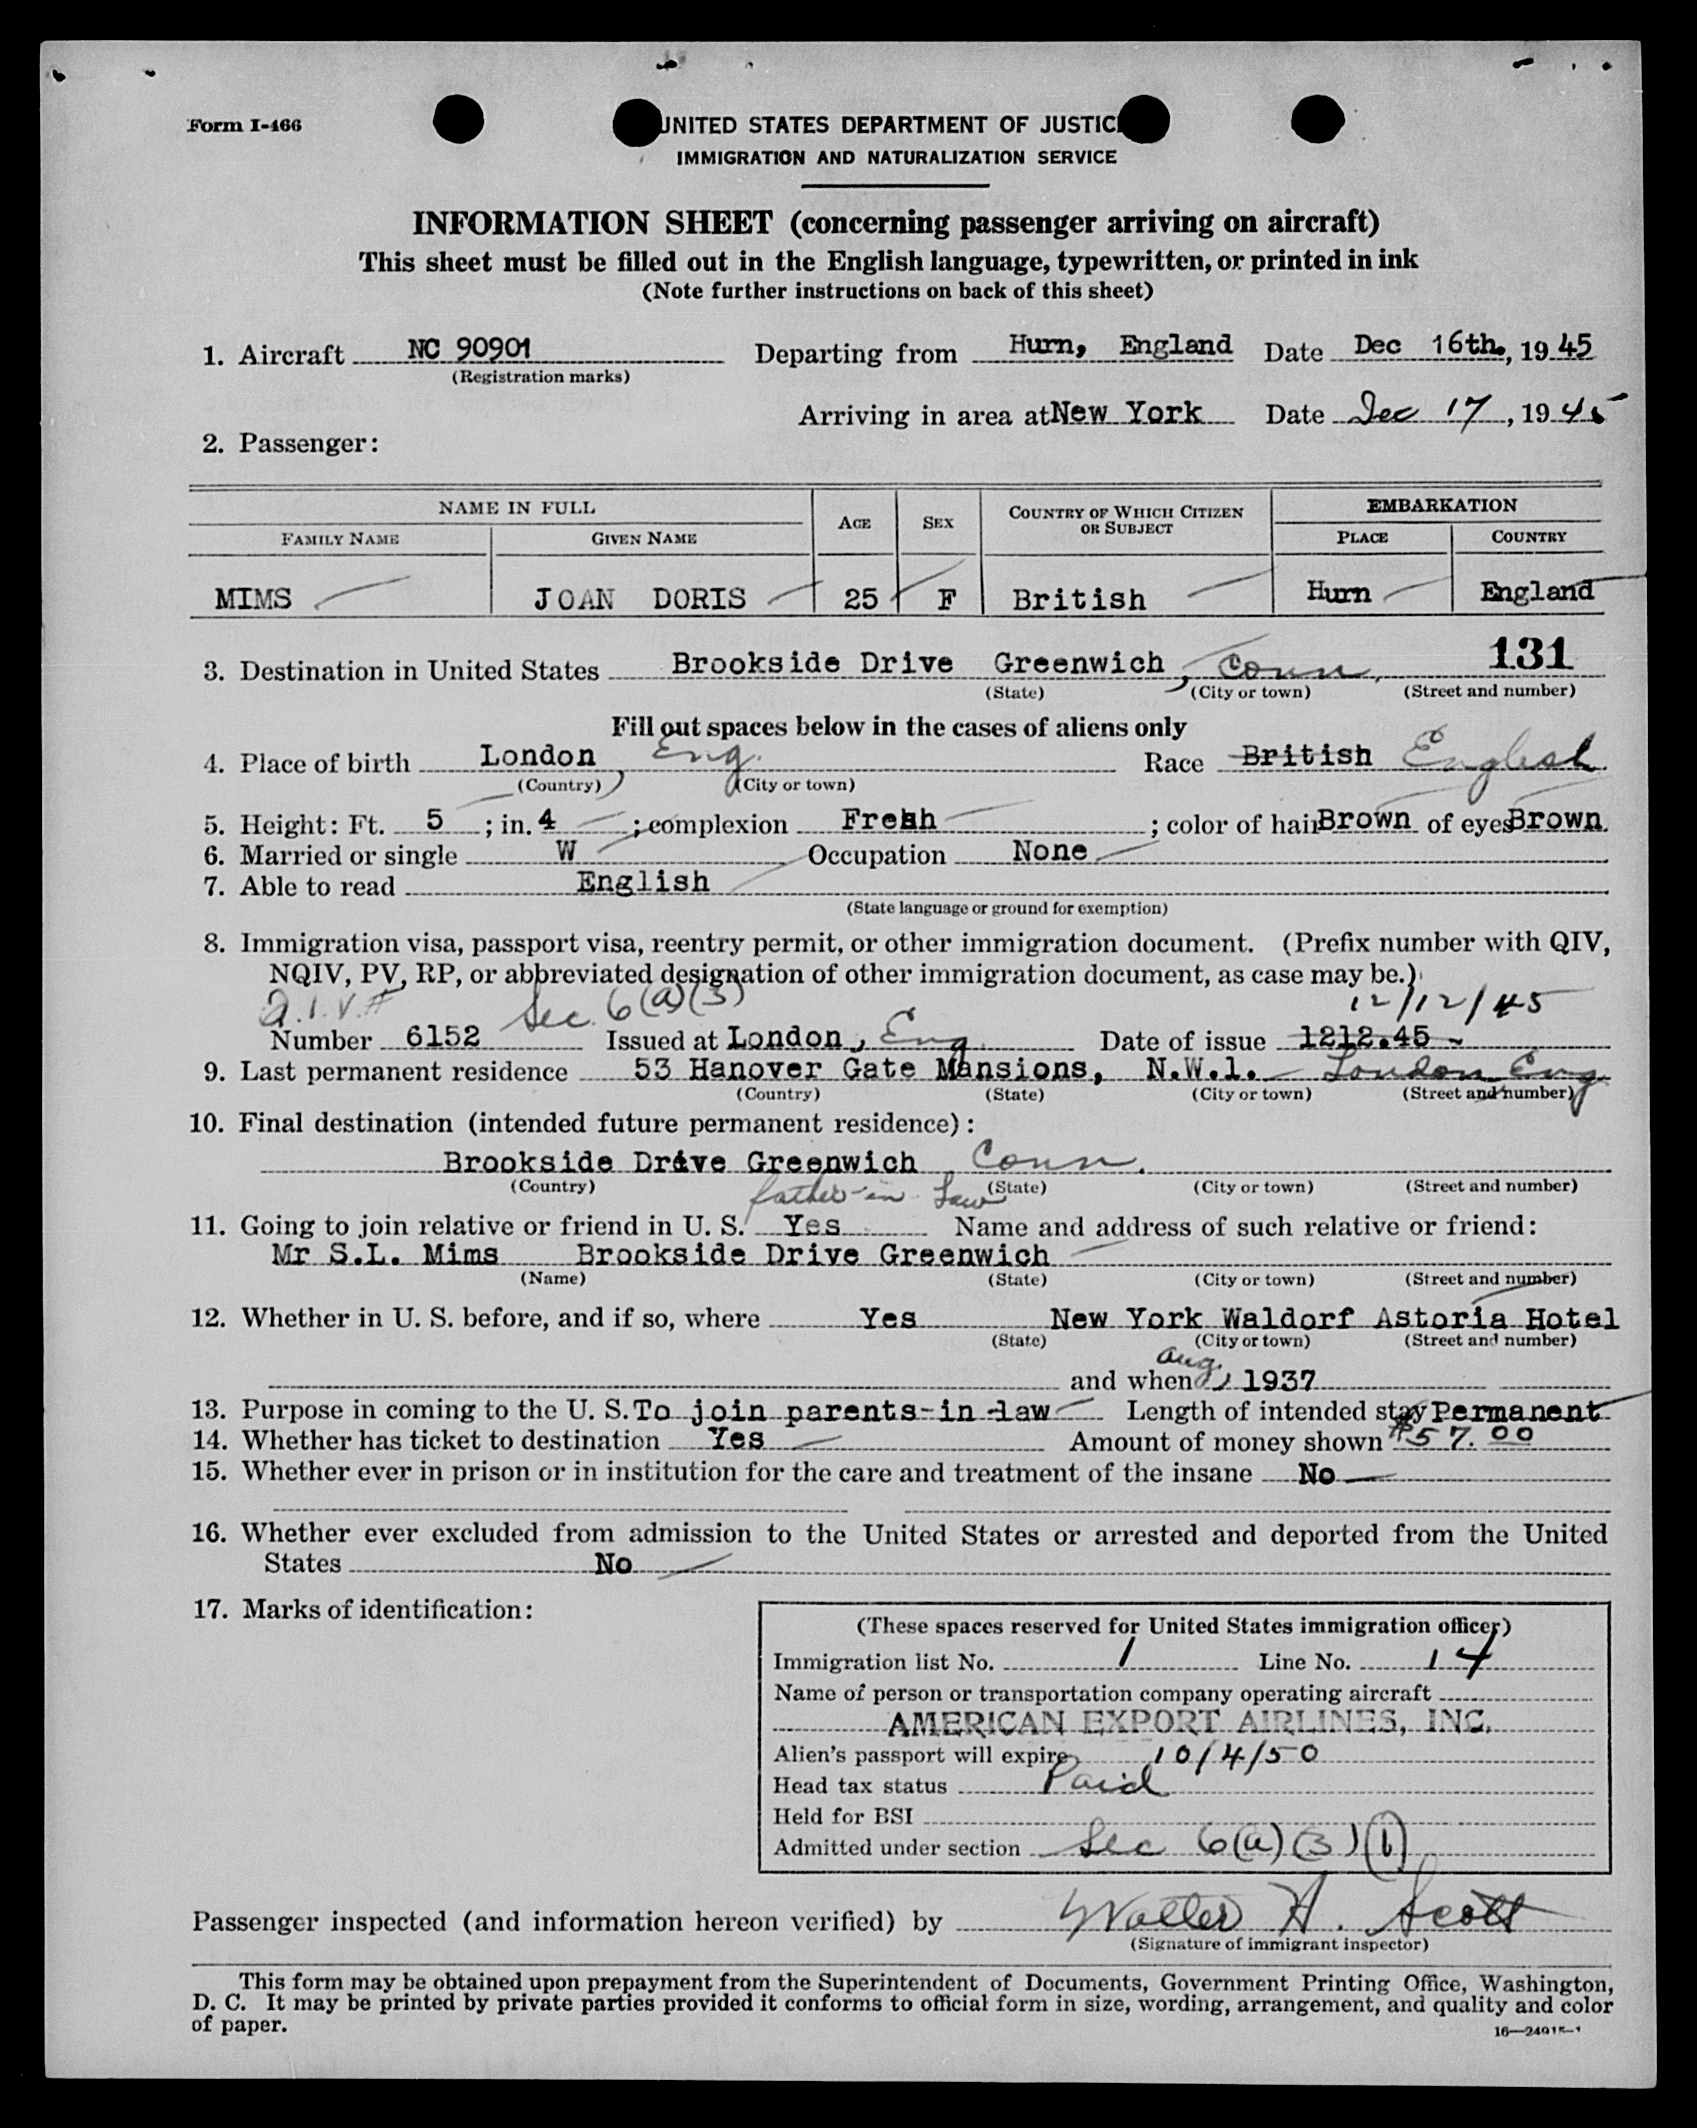 Form I-466
UNITED STATES DEPARTMENT OF JUSTICE
IMMIGRATION AND NATURALIZATION SERVICE
INFORMATION SHEET (concerning passenger arriving on aircraft)
This sheet must be filled out in the English language, typewritten, or printed in ink
(Note further instructions on back of this sheet)
1. Aircraft NC 90901 Departing from Hurn, England Date Dec 16th, 1945
(Registration marks)
Arriving in area at New York Date Dec 17, 1945
2. Passenger:
NAME IN FULL AGE SEX COUNTRY OF WHICH CITIZEN OR SUBJECT EMBARKATION
FAMILY NAME GIVEN NAME PLACE COUNTRY
MIMS JOAN DORIS 25 F British Hurn England
131
3. Destination in United States Brookside Drive Greenwich, Conn.
(State) (City or town) (Street and number)
Fill out spaces below in the cases of aliens only
4. Place of birth London, Eng. Race British English
(Country) (City or town)
5. Height: Ft. 5 ; in. 4 ; complexion Fresh ; color of hair Brown of eyes Brown.
6. Married or single W Occupation None
7. Able to read English
(State language or ground for exemption)
8. Immigration visa, passport visa, reentry permit, or other immigration document. (Prefix number with QIV,
NQIV, PV, RP, or abbreviated designation of other immigration document, as case may be.)
Q.I.V.# Sec. 6(a)(3) 12/12/45
Number 6152 Issued at London, Eng. Date of issue 1212.45
9. Last permanent residence 53 Hanover Gate Mansions, N.W.1. London Eng
(Country) (State) (City or town) (Street and number)
10. Final destination (intended future permanent residence):
Brookside Drive Greenwich, Conn.
(Country) (State) (City or town) (Street and number)
father-in-law
11. Going to join relative or friend in U. S. Yes Name and address of such relative or friend:
Mr S.L. Mims Brookside Drive Greenwich
(Name) (State) (City or town) (Street and number)
12. Whether in U. S. before, and if so, where Yes New York Waldorf Astoria Hotel
(State) (City or town) (Street and number)
and when Aug., 1937
13. Purpose in coming to the U. S. To join parents-in-law Length of intended stay Permanent
14. Whether has ticket to destination Yes Amount of money shown $57.00
15. Whether ever in prison or in institution for the care and treatment of the insane No
16. Whether ever excluded from admission to the United States or arrested and deported from the United
States No
17. Marks of identification:
(These spaces reserved for United States immigration officer)
Immigration list No. 1 Line No. 14
Name of person or transportation company operating aircraft
AMERICAN EXPORT AIRLINES, INC.
Alien's passport will expire 10/4/50
Head tax status Paid
Held for BSI
Admitted under section Sec 6(a)(3)(b)
Passenger inspected (and information hereon verified) by Walter H. Scott
(Signature of immigrant inspector)
This form may be obtained upon prepayment from the Superintendent of Documents, Government Printing Office, Washington,
D. C. It may be printed by private parties provided it conforms to official form in size, wording, arrangement, and quality and color
of paper.